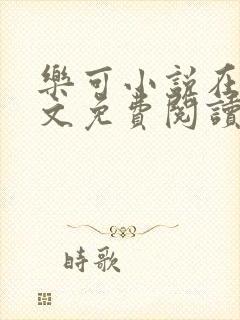 樂可小說在
文免費閱讀
時歌